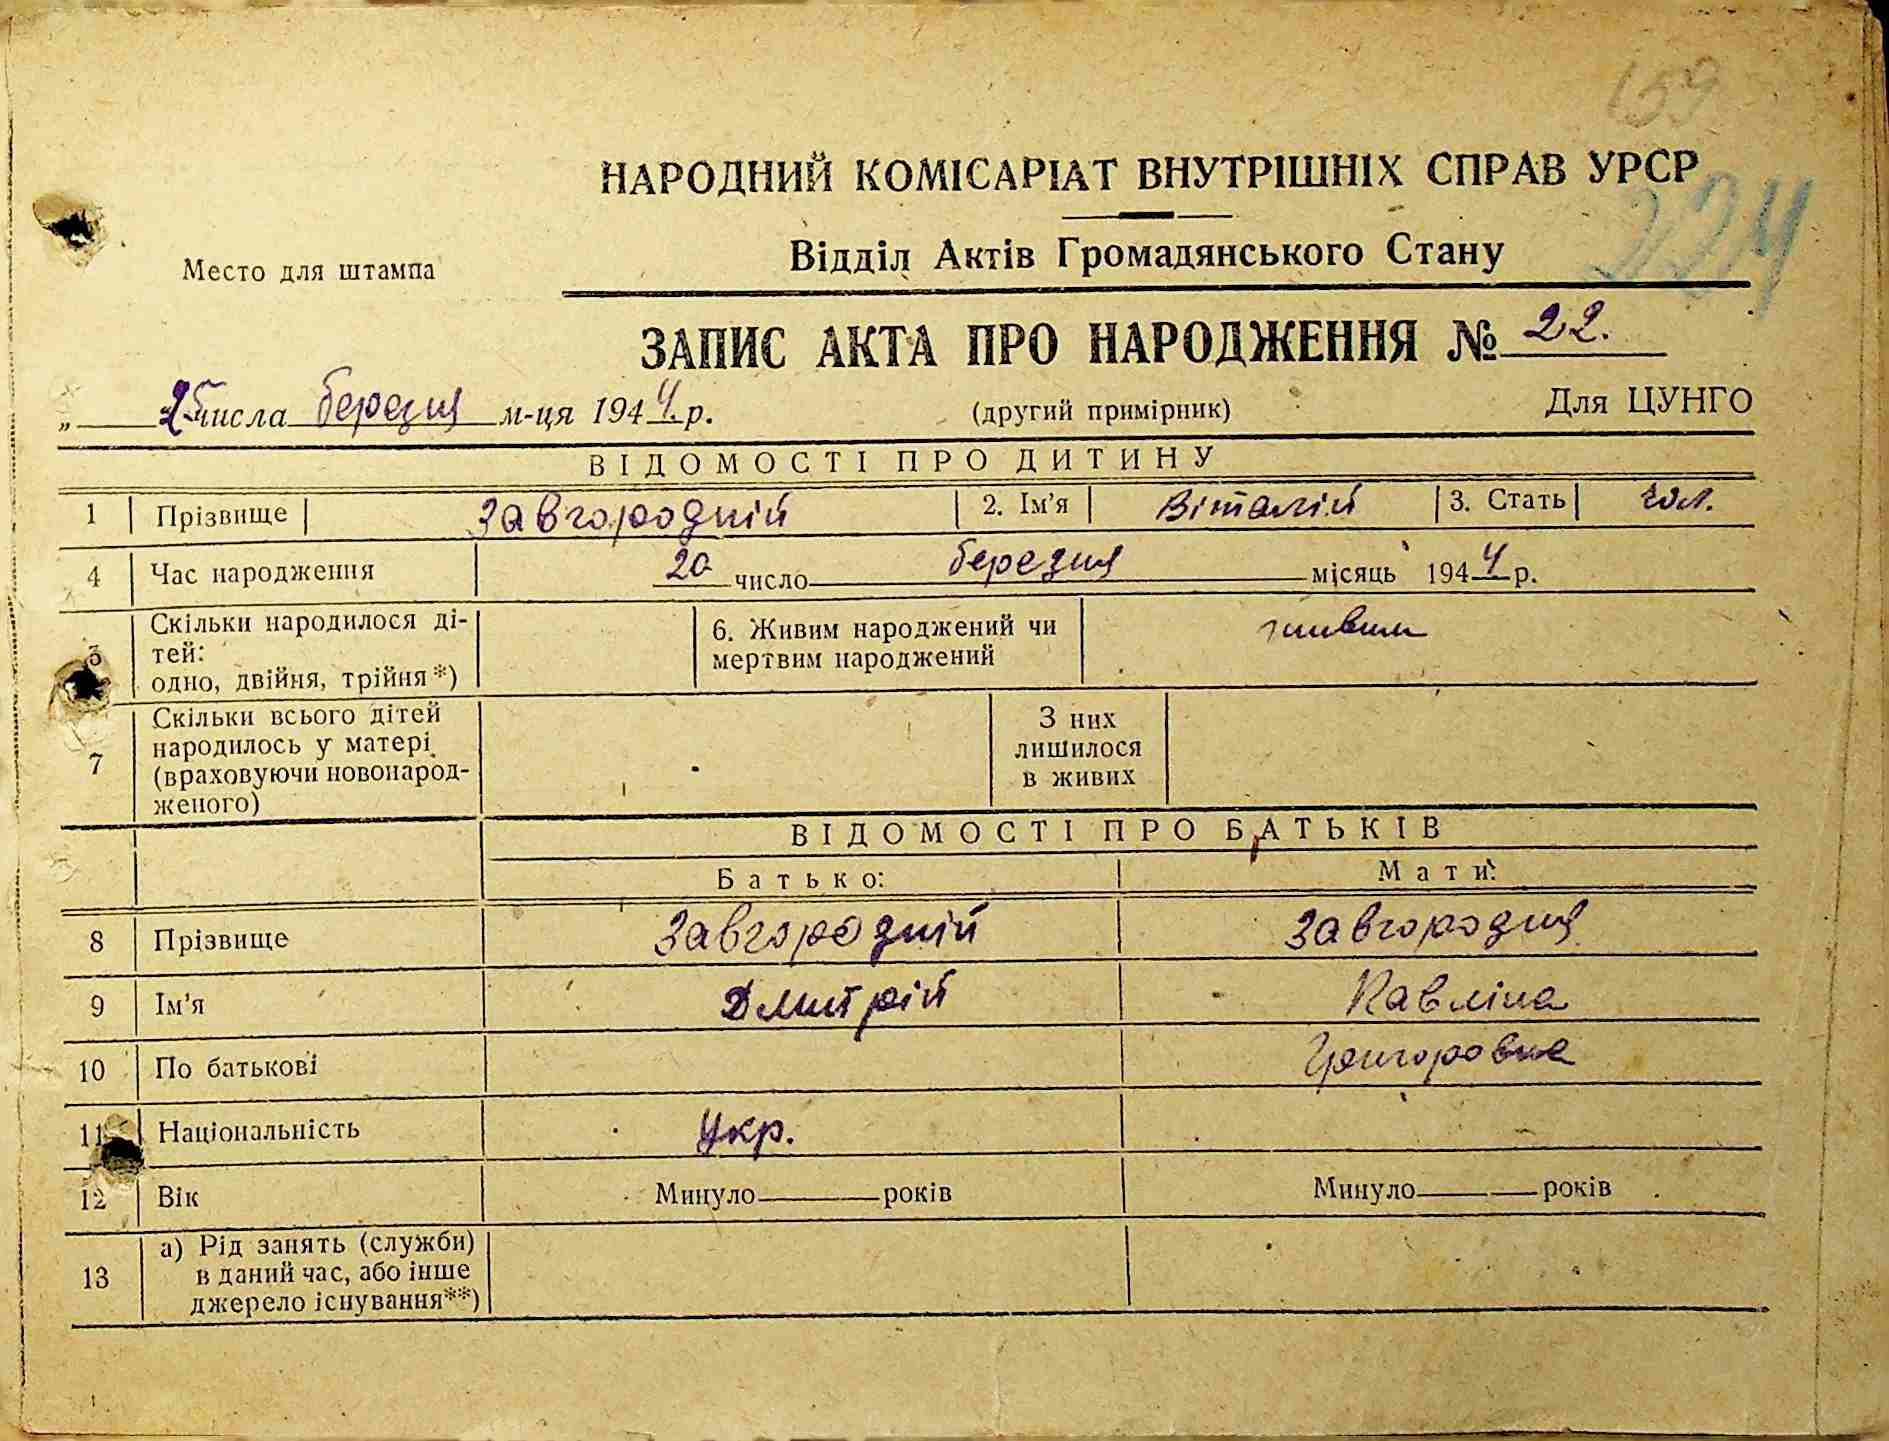 159
НАРОДНИЙ КОМІСАРІАТ ВНУТРІШНІХ СПРАВ УРСР
224
Відділ Актів Громадянського Стану
Место для штампа
ЗАПИС АКТА ПРО НАРОДЖЕННЯ № 22.
„ 25 числа березня м-ця 1944 р. (другий примірник) Для ЦУНГО
ВІДОМОСТІ ПРО ДИТИНУ
1 Прізвище Завгородній 2. Ім'я Віталій 3. Стать чол.
4 Час народження 20 число березня місяць 1944 р.
5 Скільки народилося ді-
тей:
одно, двійня, трійня*)
6. Живим народжений чи
мертвим народжений
живим
7 Скільки всього дітей
народилось у матері
(враховуючи новонарод-
женого)
З них
лишилося
в живих
ВІДОМОСТІ ПРО БАТЬКІВ
Батько: Мати:
8 Прізвище Завгородній Завгородня
9 Ім'я Дмитрій Павліна
10 По батькові Григоровна
11 Національність Укр.
12 Вік Минуло років Минуло років
13 а) Рід занять (служби)
в даний час, або інше
джерело існування**)